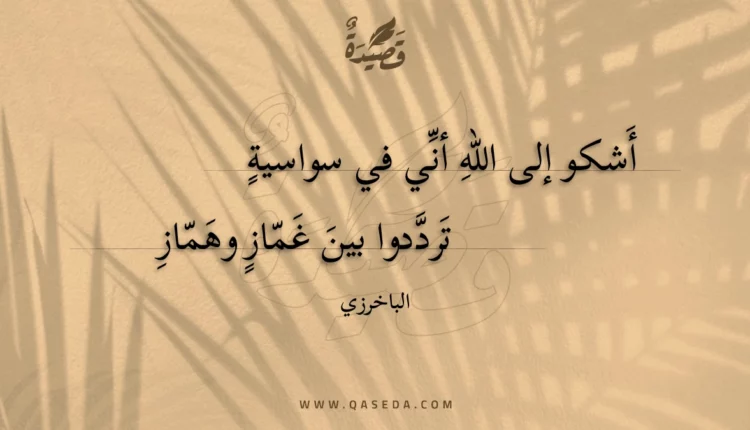 قَصِيدَةٌ
أَشكو إلى اللهِ أنِّي في سواسيةٍ
تَردَّدوا بينَ غَمّازٍ وهَمّازِ
الباخرزي
WWW.QASEDA.COM